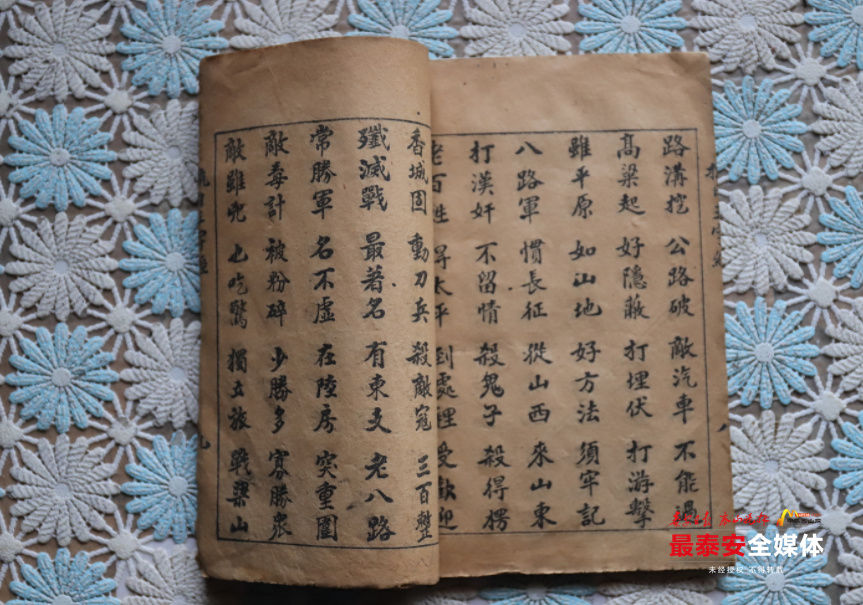 路溝挖 公路破 敵汽車 不能過
高梁起 好隱蔽 打埋伏 打游擊
雖平原 如山地 好方法 須牢記
八路軍 慣長征 從山西 來山東
打漢奸 不留情 殺鬼子 殺得楞
老百姓 得太平 到處裡 受歡迎
香城固 動刀兵 殺敵寇 三百整
殲滅戰 最著名 有東支 老八路
常勝軍 名不虛 在陸房 突重圍
敵毒計 被粉碎 少勝多 寡勝衆
敵雖兇 也吃驚 獨立旅 戰梁山
九
最泰安全媒体
未经授权 不得转载